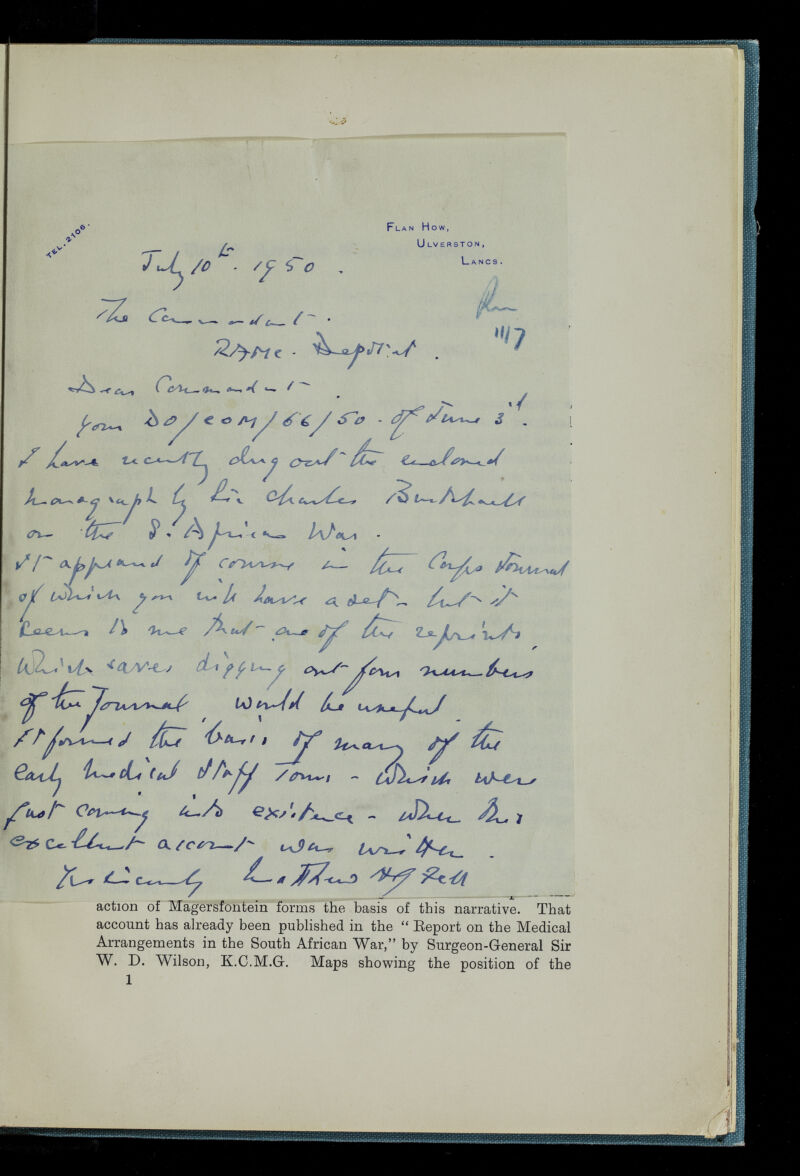 TEL. 2106.
FLAN HOW,
ULVERSTON,
LANCS.
July 10th. 1950.
11/7
The Commandant.
RAMC. Depot.
Dear Commandant
Your DO/COM/66/50. of June 3d.
I have recently dug out the enclosed
monograph by Sir Charles Burtchaell
on the S. African War.
It appeared of course in the Corps Journal
of which you will have a set - but it
seems to me that one of the reprints,
which saves digging out four numbers
of the Journal, would be useful.
It formed the basis of many of the
early medical Staff Tours - which were
just coming into existence - when this
excellent account was written.
Yrs sincerely Matthew HG Fell
action of Magersfontein forms the basis of this narrative. That
account has already been published in the “ Report on the Medical
Arrangements in the South African War,” by Surgeon-General Sir
W. D. Wilson, K.C.M.G. Maps showing the position of the
1